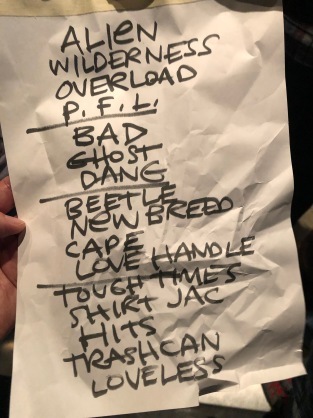 ALIEN
WILDERNESS
OVERLOAD
P.F.L.
BAD
GHOST
DANG
BEETLE
NEW BREED
CAPE
LOVE HANDLE
TOUGH TIMES
SHIRT JAC
HITS
TRASHCAN
LOVELESS